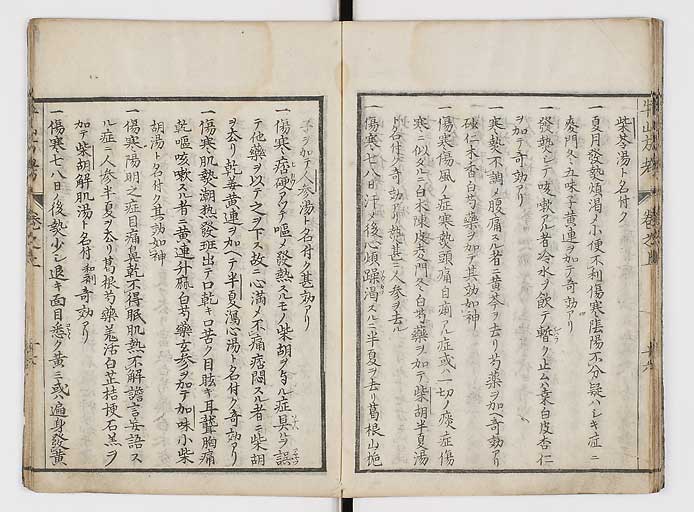 柴苓湯ト名付ク
一夏月發熱煩渇メ小便不利傷寒陰陽不分疑ハレキ症ニ
麥門冬五味子黄連ヲ加テ奇効アリ
一發熱シテ咳嗽アル者冷水ヲ飲テ暫ク止ムハ桑白皮杏仁
ヲ加テ奇効アリ
一寒熱不調メ腹痛スル者ニ黄芩ヲ去リ芍藥ヲ加ヘ奇効アリ
仁木香白芍藥ヲ加テ其効如神
一傷寒傷風ノ症寒熱頭痛自痢アル症或ハ一切ノ痰症傷
寒ニ似タルニ白朮陳皮麥門冬白芍ヲ加テ柴胡半夏湯
ト名付ク奇効アリ許甚ニ人参ヲ去ル
一傷寒七八日汗メ後心煩躁渇スルニ半夏ヲ去リ葛根山梔
子ヲ加テ人参湯ト名付ク甚効アリ
一傷寒痞硬アツテ嘔メ發熱スルモノ柴胡ヲ与ル症具ルヲ誤
テ他藥ヲ以テ之ヲ下ス故ニ心満メ不痛痞悶スル者ニ柴胡
ヲ去リ乾姜黄連ヲ加ヘテ半夏瀉心湯ト名付ク奇効アリ
一傷寒肌熱潮熱發班出テ口乾キ口苦ク目眩キ耳聾胸痛
乾嘔咳嗽スル者ニ黄連升麻白芍藥玄参ヲ加テ加味小柴
胡湯ト名付ク其効如神
一傷寒陽明之症目痛鼻乾不得眠肌熱不解譫言妄語ス
ル症ニ人参半夏ヲ去リ葛根芍藥羌活白芷桔梗石羔ヲ
加テ柴胡解肌湯ト名付奇効アリ
一傷寒七八日ノ後熱少シ退キ面目悉ク黄ニ或ハ遍身發黄